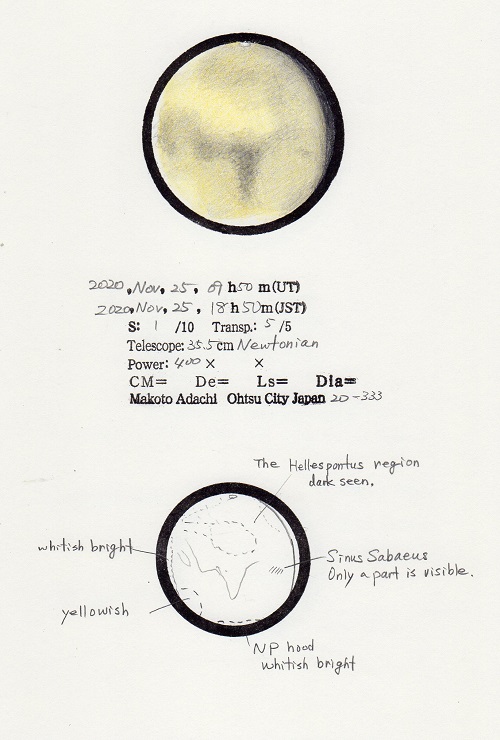 2020, Nov, 25, 09 h 50 m (UT)
2020, Nov, 25, 18 h 50 m (JST)
S: 1 /10 Transp.: 5 /5
Telescope: 35.5 cm Newtonian
Power: 400 × ×
CM= De= Ls= Dia=
Makoto Adachi Ohtsu City Japan 20-333
The Hellespontus region
dark seen.
whitish bright
Sinus Sabaeus
Only a part is visible.
yellowish
NP hood
whitish bright